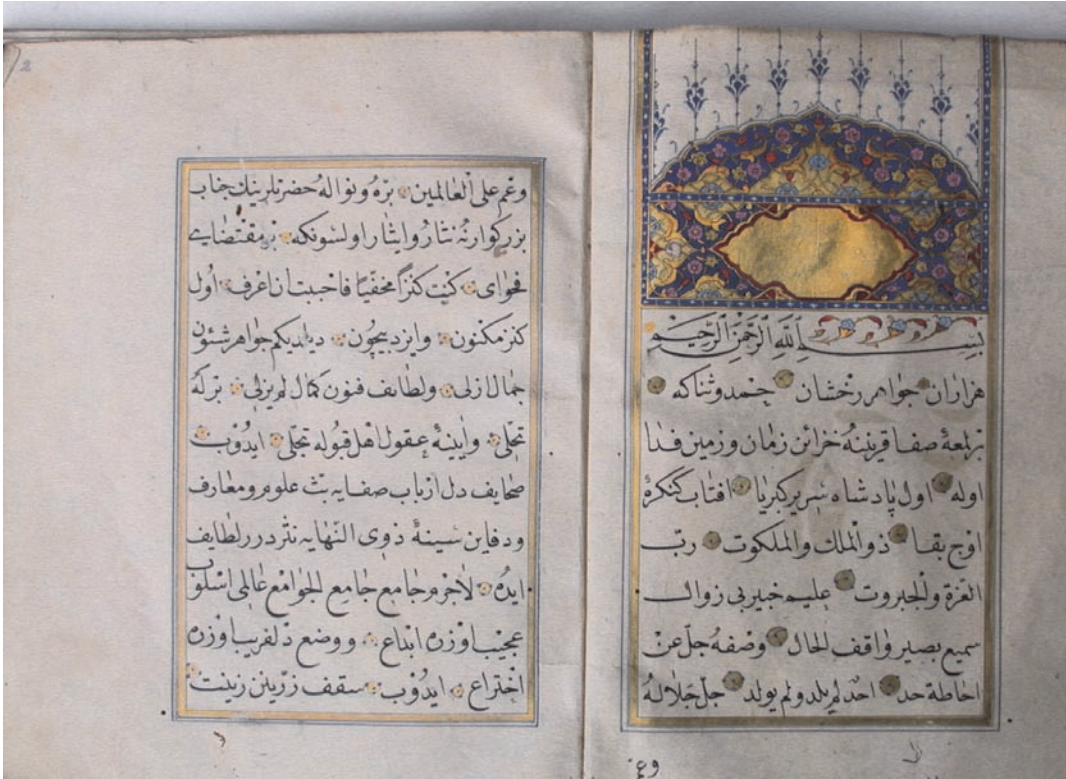 بسم الله الرحمن الرحيم
هزاران جواهر رخشان حمد و ثنا که
برلمعۀ صفا قرینیۀ خزائن زمان و زمین فدا
اوله اول پادشاه سریر کبریا افتاب کنکرۀ
اوج بقا ذو الملك والملكوت رب
العزة والجبروت عليم خبير بى زوال
سميع بصير واقف الحال وصفه جل عن
احاطة حد احد لم يلد ولم يولد جل جلاله
وعم
وعم على العالمين بره ونواله حضرتلرينك جناب
بزركوارنه نثار وايثار اولسونكه بر مقتضاى
فحواى كنت كنزاً مخفيّا فاحببت ان اعرف اول
كنز مكنون وايزد بيچون ديلديكم جواهر شئون
جمال ازلى ولطايف فنون كمال لم يزلى برله
تجلى وآيينۀ عقول اهل قبوله تجلى ايدوب
صحايف دل ارباب صفايه بث علوم ومعارف
ودفاين سينۀ ذوى النهايه نثر درر لطايف
ايده لاجرم جامع جامع الجوامع عالمى اسلوب
عجيب اوزره ابداع ووضع دلفريب اوزره
اختراع ايدوب سقف زرين زينت
2